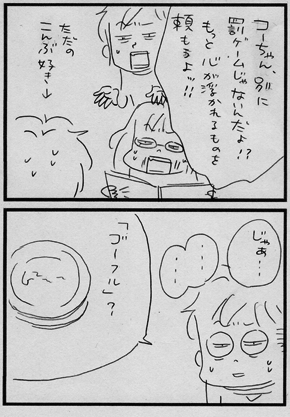 コーちゃん、別に
罰ゲームじゃないんだよ!?
もっと心が浮かれるものを
頼もうよッ!!
ただの
こんぶ好き→
じゃあ…
……
「ゴーフル」?